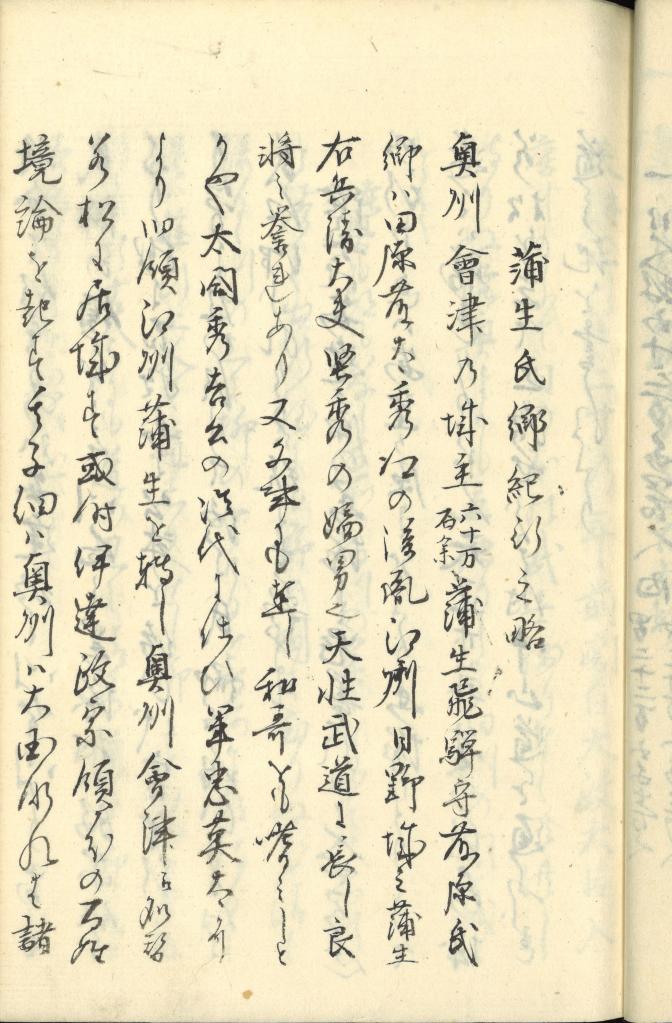 蒲生氏郷紀行之略
奥州會津乃城主六十万石余蒲生飛騨守藤原氏
郷ハ田原藤太秀郷の後胤江州日野城主蒲生
右兵衛大夫賢秀の嫡男也天性武道に長し良
将之誉れあり又文武も達し和哥をも嗜みしと
かや太閤秀吉公の御代に仕ひ軍忠莫太に
より旧領江州蒲生を轉し奥州會津に
若松に居城す或時伊達政宗領分の百姓
境論を起す其子細ハ奥州ハ大国成れは諸